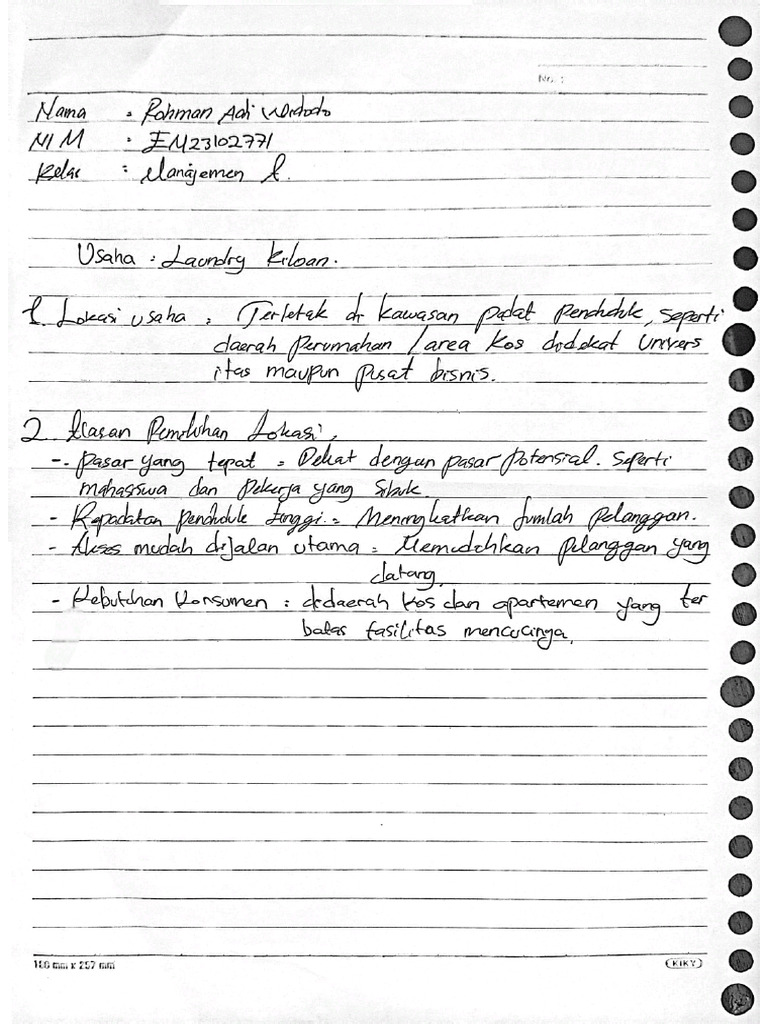 No. :
Nama : Rohman Adi Widodo
NIM : EM23102771
Kelas : Manajemen
Usaha : Laundry Kiloan.
1. Lokasi usaha : Terletak di kawasan padat Penduduk, seperti
daerah perumahan / area kos didekat univers
itas maupun pusat bisnis.
2. Alasan Pemilihan Lokasi,
-. Pasar yang tepat = Dekat dengan pasar potensial. Seperti
mahasiswa dan pekerja yang sibuk.
- Kepadatan penduduk tinggi = Meningkatkan Jumlah pelanggan.
- Akses mudah dijalan utama = Memudahkan pelanggan yang
datang.
- Kebutuhan Konsumen : didaerah kos dan apartemen yang ter
batas fasilitas mencucinya.
180 mm x 257 mm
KIKY